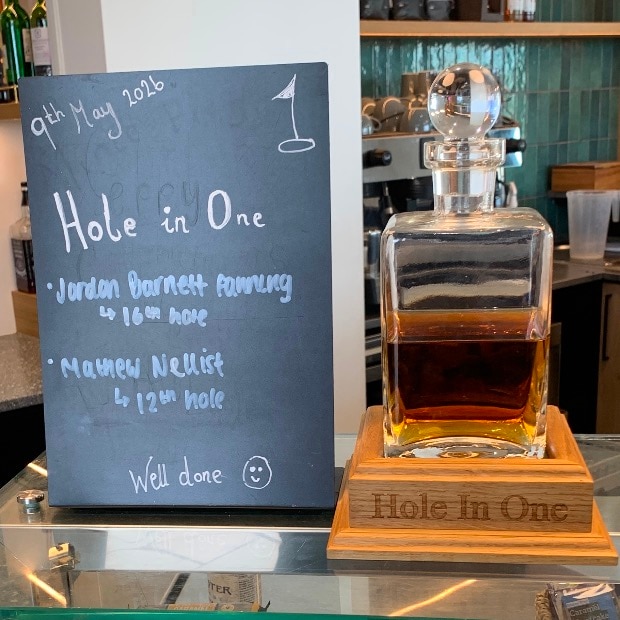 9th May 2026
Hole in One
• Jordan Barnett Fanning
↳ 16th hole
• Mathew Nellist
↳ 12th hole
Well done
Hole In One
TER
Caramel